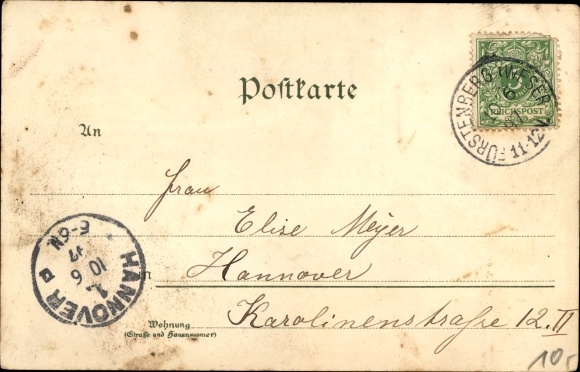 Postkarte
FÜRSTENBERG (WESER)
6
97
11-12V
REICHSPOST
An
Frau
Elise Meyer
in Hannover
Karolinenstraße 12. II
Wohnung
(Straße und Hausnummer)
HANNOVER
10 6
97
6-6N
10,-